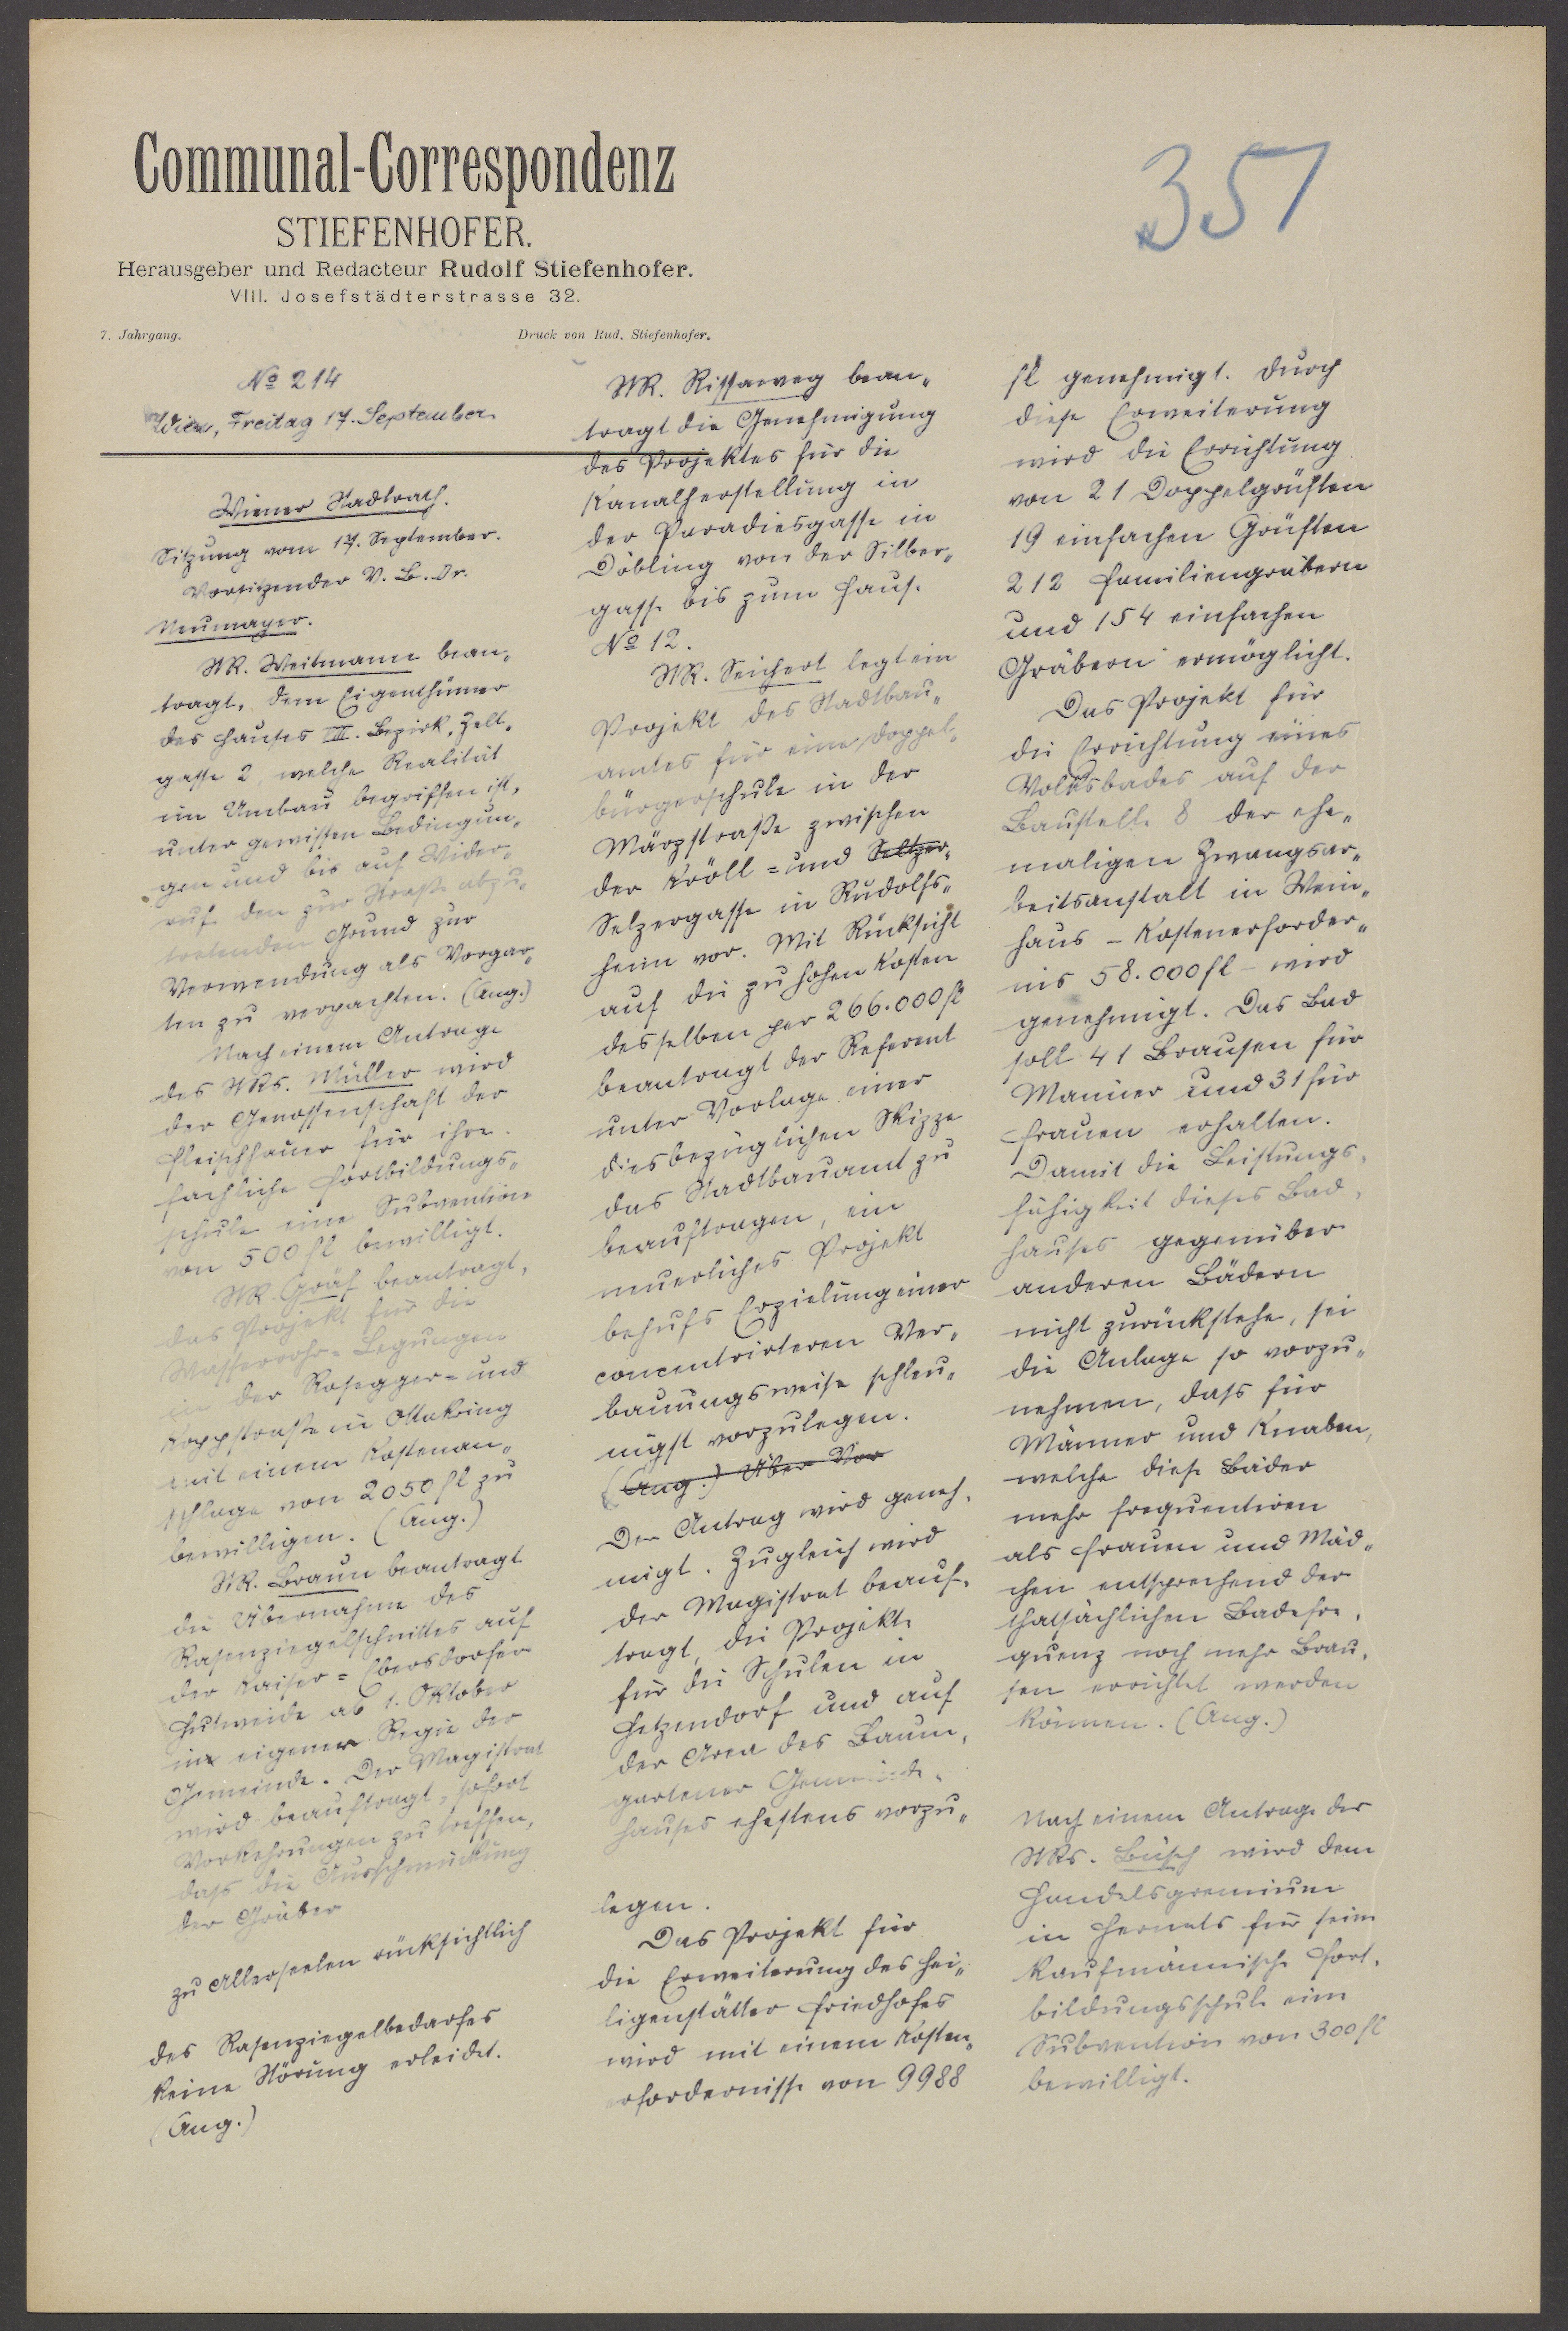 Communal-Correspondenz
STIEFENHOFER.
Herausgeber und Redacteur Rudolf Stiefenhofer.
VIII. Josefstädterstrasse 32.
7. Jahrgang. Druck von Rud. Stiefenhofer.
351
No 214
Wien, Freitag 17. September
Wiener Stadtrath.
Sitzung vom 17. September.
Vorsitzender V. B. Dr.
Neumayer.
StR. Weitmann bean-
tragt, dem Eigenthümer
des Hauses III. Bezirk, Zelt-
gasse 2, welche Realität
im Umbau begriffen ist,
unter gewissen Bedingun-
gen und bis auf Wider-
ruf den zur Straße abzu-
tretenden Grund zur
Verwendung als Vorgar-
ten zu verpachten. (Ang.)
Nach einem Antrage
des StRs. Müller wird
der Genossenschaft der
Fleischhauer für ihre
fachliche Fortbildungs-
schule eine Subvention
von 500 fl bewilligt.
StR. Gräf beantragt,
das Projekt für die
Wasserrohr-Legungen
in der Rosegger- und
Koppstraße in Ottakring
mit einem Kostenan-
schlage von 2050 fl zu
bewilligen. (Ang.)
StR. Braun beantragt
die Übernahme des
Rasenziegelschnittes auf
der Kaiser-Ebersdorfer
Hutweide ab 1. Oktober
in eigener Regie der
Gemeinde. Der Magistrat
wird beauftragt, sofort
Vorkehrungen zu treffen,
dass die Ausschmückung
der Gräber
zu Allerseelen rücksichtlich
des Rasenziegelbedarfes
keine Störung erleidet.
(Ang.)
StR. Rissaweg bean-
tragt die Genehmigung
des Projektes für die
Kanalherstellung in
der Paradiesgasse in
Döbling von der Silber-
gasse bis zum Hause
No 12.
StR. Seichert legt ein
Projekt des Stadtbau-
amtes für eine Doppel-
bürgerschule in der
Märzstraße zwischen
der Kröll- und Seltzer-
Selzergasse in Rudolfs-
heim vor. Mit Rücksicht
auf die zu hohen Kosten
desselben per 266.000 fl
beantragt der Referent
unter Vorlage einer
diesbezüglichen Skizze
das Stadtbauamt zu
beauftragen, ein
neuerliches Projekt
behufs Erzielung einer
concentrirteren Ver-
bauungsweise schleu-
nigst vorzulegen.
(Ang.) Über Vor
Der Antrag wird geneh-
migt. Zugleich wird
der Magistrat beauf-
tragt, die Projekte
für die Schulen in
Hetzendorf und auf
der Area des Baum-
gartener Gemeinde-
hauses ehestens vorzu-
legen.
Das Projekt für
die Erweiterung des Hei-
ligenstätter Friedhofes
wird mit einem Kosten-
erfordernisse von 9988
fl genehmigt. Durch
diese Erweiterung
wird die Errichtung
von 21 Doppelgrüften
19 einfachen Grüften
212 Familiengräbern
und 154 einfachen
Gräbern ermöglicht.
Das Projekt für
die Errichtung eines
Volksbades auf der
Baustelle 8 der ehe-
maligen Zwangsar-
beitsanstalt in Wein-
haus - Kostenerforder-
nis 58.000 fl - wird
genehmigt. Das Bad
soll 41 Brausen für
Männer und 31 für
Frauen erhalten.
Damit die Leistungs-
fähigkeit dieses Bad-
hauses gegenüber
anderen Bädern
nicht zurückstehe, sei
die Anlage so vorzu-
nehmen, dass für
Männer und Knaben,
welche diese Bäder
mehr frequentiren
als Frauen und Mäd-
chen entsprechend der
thatsächlichen Badefre-
quenz noch mehr Brau-
sen errichtet werden
können. (Ang.)
Nach einem Antrage des
StRs. Büsch wird dem
Handelsgremium
in Hernals für seine
kaufmännische Fort-
bildungsschule eine
Subvention von 300 fl
bewilligt.